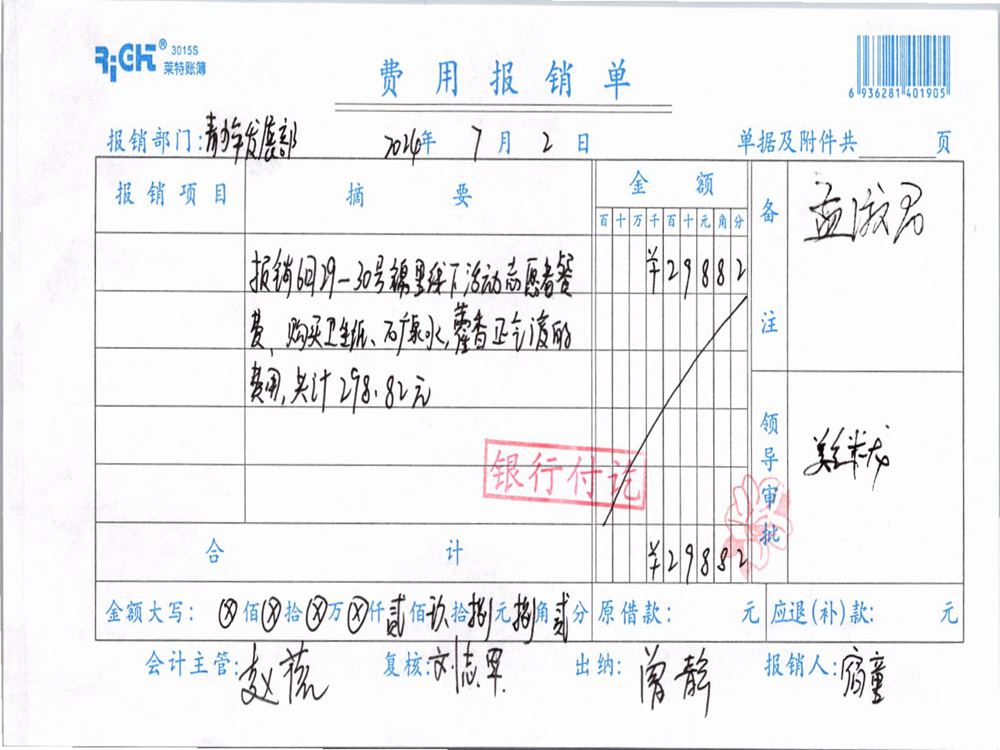 RiGHT® 3015S
莱特账簿
费用报销单
6 936281 401905
报销部门:青少年发展部 2024年 7月 2日 单据及附件共 页
报销项目 摘要 金额 备注
百十万千百十元角分
报销6月29-30号锦里线下活动志愿者餐 ¥29882
费、购买卫生纸、矿泉水,藿香正气液的
费用,共计298.82元
领导审批
银行付讫
合计 ¥29882
金额大写: ⊗佰⊗拾⊗万⊗仟贰佰玖拾捌元捌角贰分 原借款: 元 应退(补)款: 元
会计主管:赵蓓 复核: 出纳:曾静 报销人:宿童